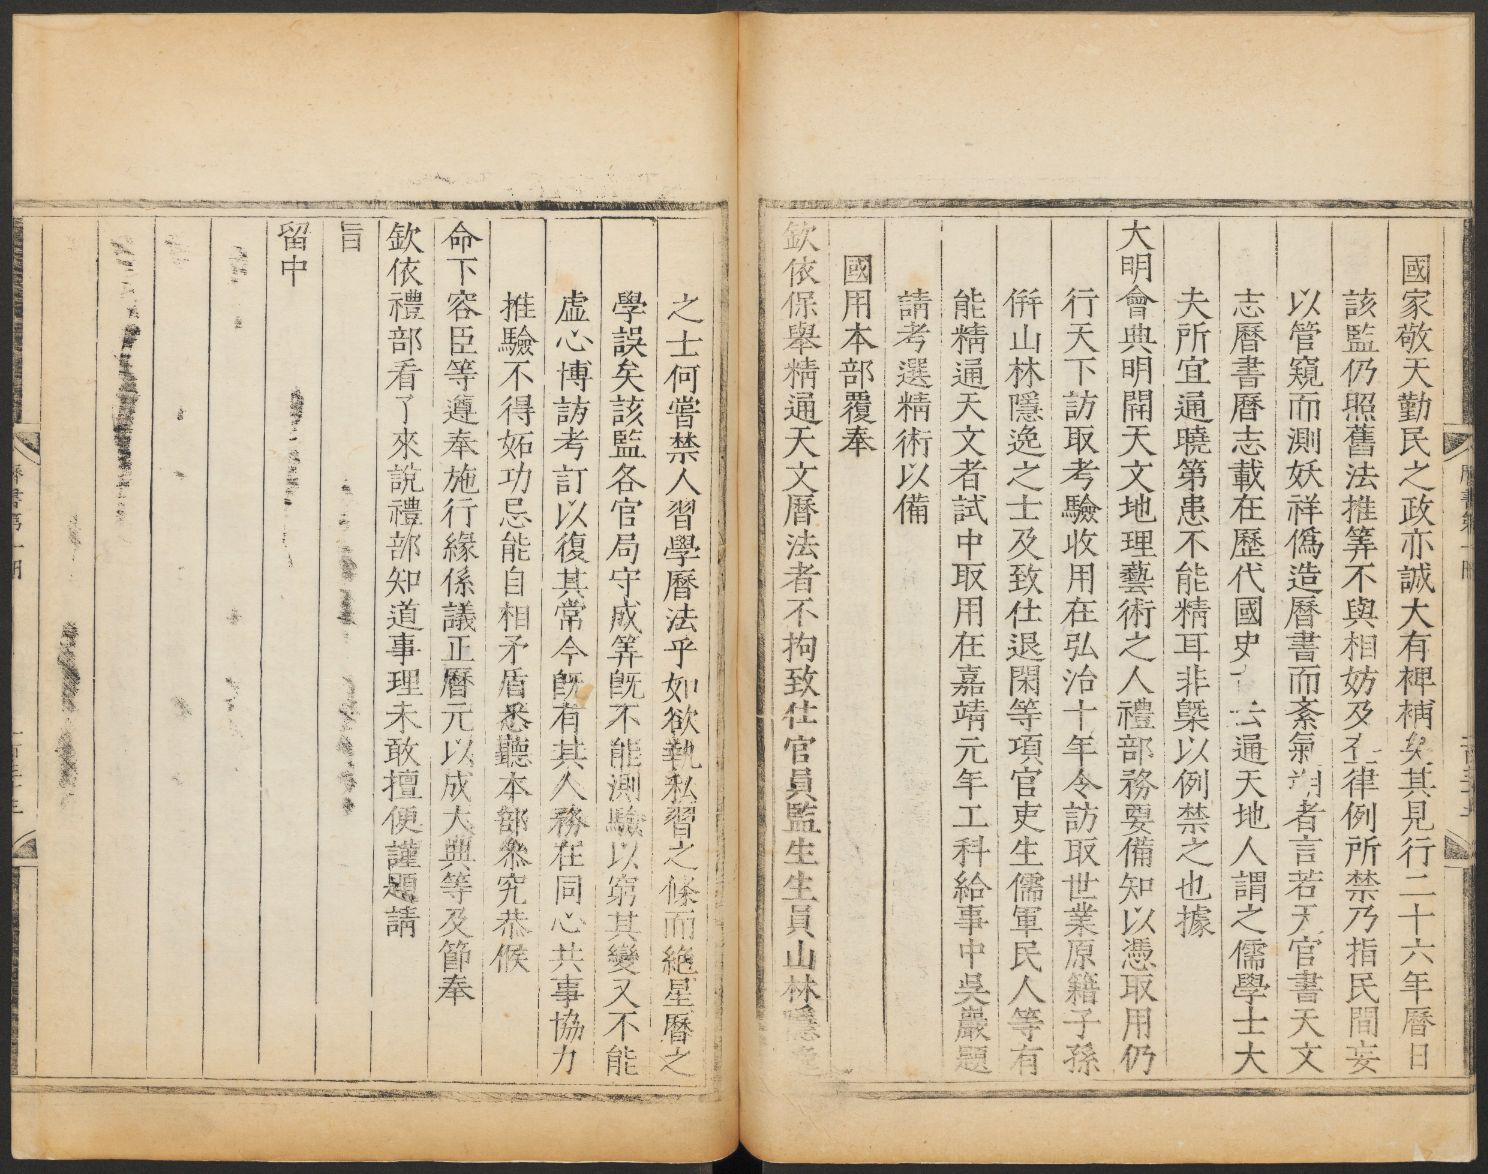 國家敬天勤民之政亦誠大有裨補矣其見行二十六年曆日
該監仍照舊法推筭不與相妨及查律例所禁乃指民間妄
以管窺而測妖祥僞造曆書而紊氣朔者言若天官書天文
志曆書曆志載在歷代國史 云通天地人謂之儒學士大
夫所宜通曉第患不能精耳非槩以例禁之也據
大明會典明開天文地理藝術之人禮部務要備知以憑取用仍
行天下訪取考驗收用在弘治十年令訪取世業原籍子孫
併山林隱逸之士及致仕退閑等項官吏生儒軍民人等有
能精通天文者試中取用在嘉靖元年工科給事中吳巖題
請考選精術以備
國用本部覆奉
欽依保舉精通天文曆法者不拘致仕官員監生生員山林隱逸
之士何嘗禁人習學曆法乎如欲執私習之條而絶星曆之
學誤矣該監各官局守成筭旣不能測驗以窮其變又不能
虛心博訪考訂以復其常今旣有其人務在同心共事協力
推驗不得妬功忌能自相矛盾悉聽本部叅究恭候
命下容臣等遵奉施行緣係議正曆元以成大典等及節奉
欽依禮部看了來說禮部知道事理未敢擅便謹題請
旨
留中
曆書第一冊